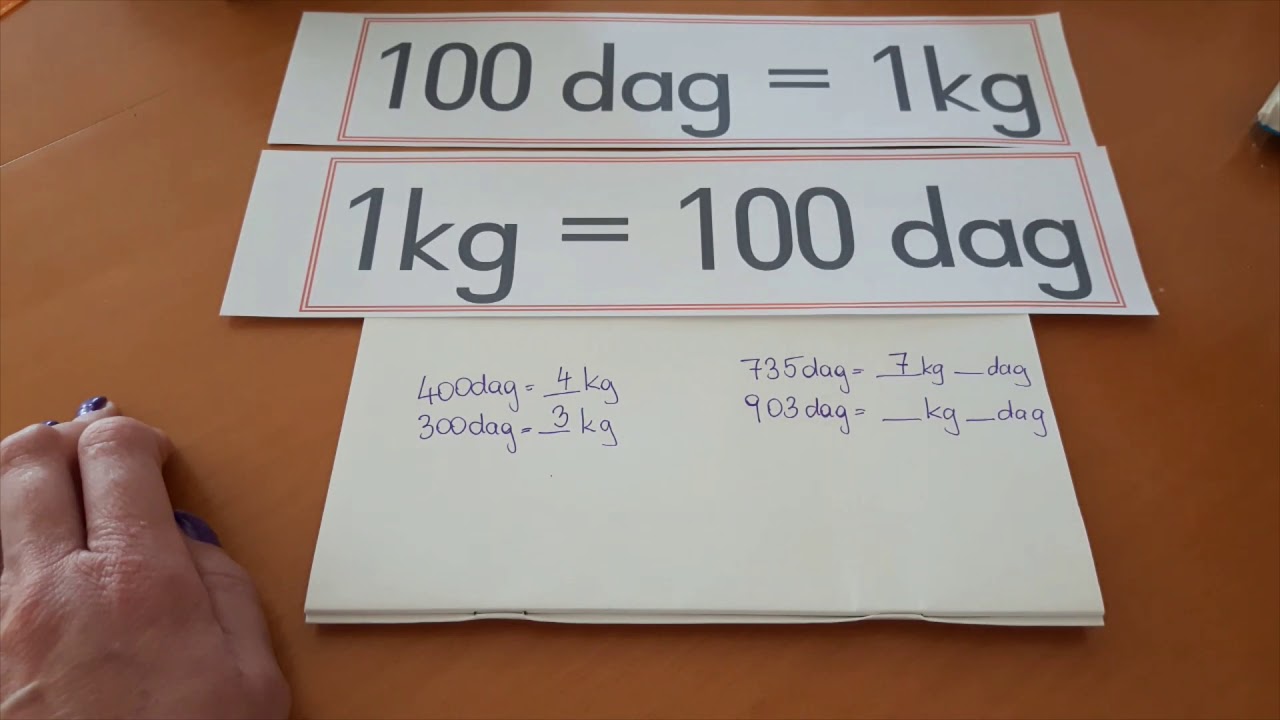 100 dag = 1kg
1kg = 100 dag
400dag = 4 kg
300dag = 3 kg
735dag = 7 kg __ dag
903dag = __ kg __ dag